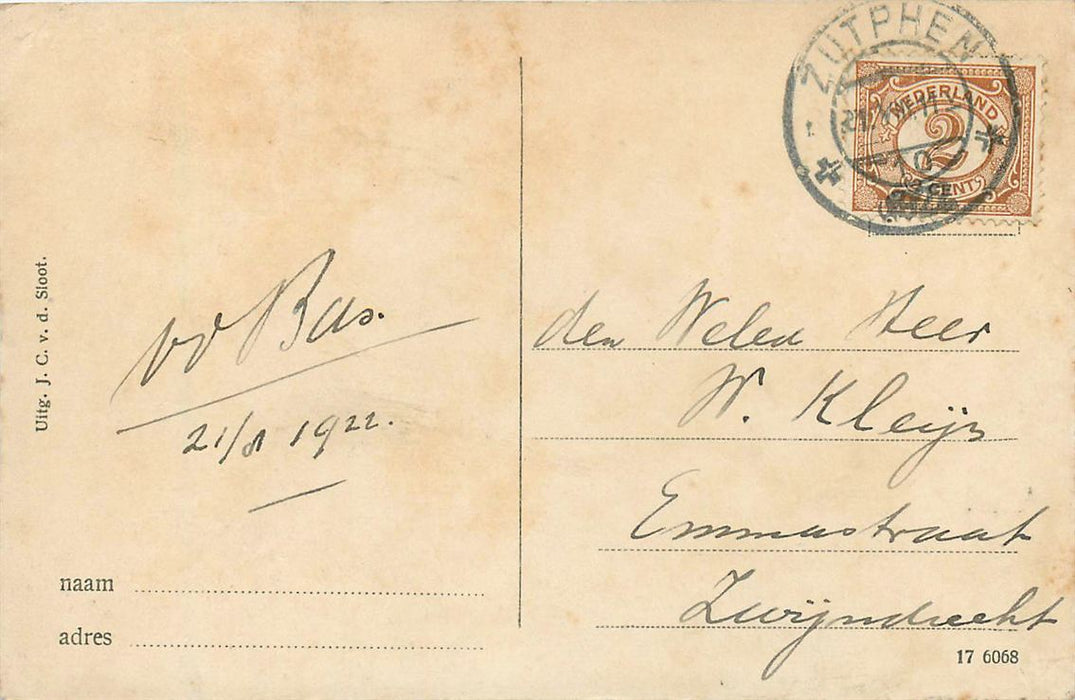 ZUTPHEN
NEDERLAND
2
CENT
Uitg. J. C. v. d. Sloot.
vd Bas.
1922.
den Weled Heer
W. Kleijn
Emmastraat
Zwijndrecht
naam
adres
17 6068